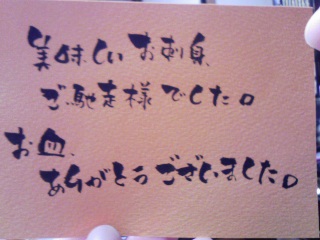 美味しいお刺身、
ご馳走様でした。
お皿、
ありがとうございました。